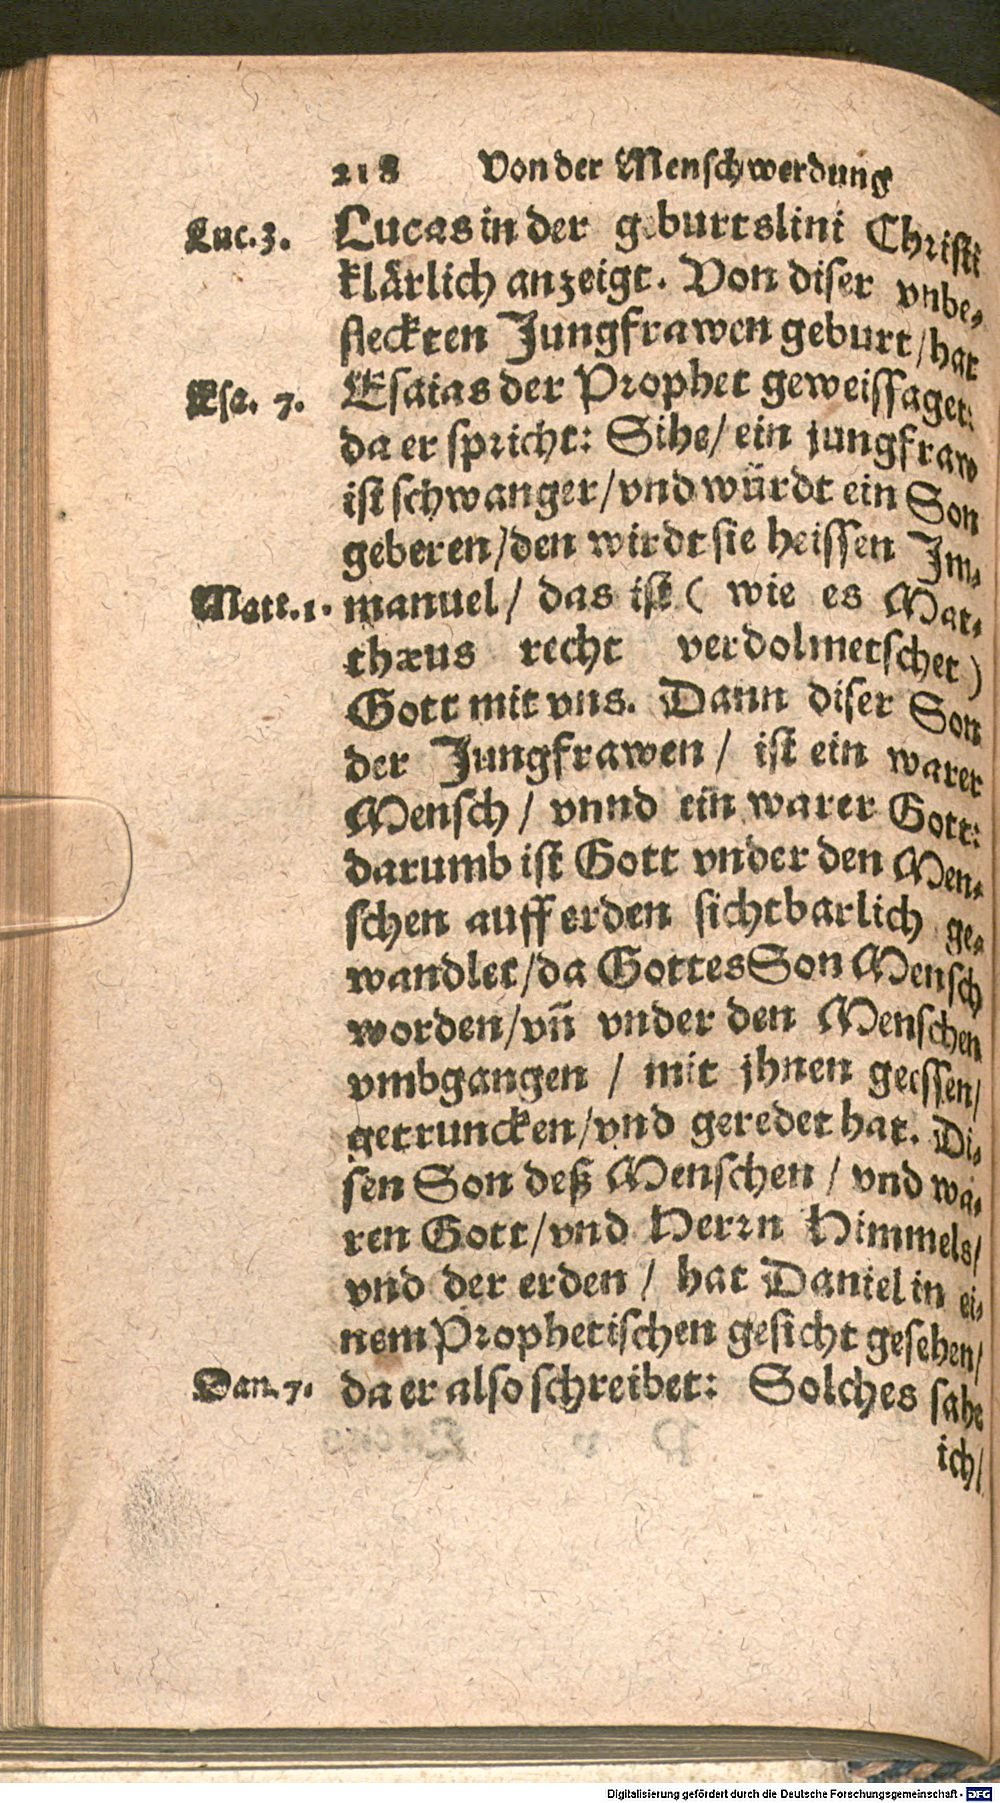 218 Von der Menschwerdung
Luc. 3. Lucas in der geburtslini Christi
klärlich anzeigt. Von diser vnbe-
fleckten Jungfrawen geburt / hat
Esa. 7. Esaias der Prophet geweissaget:
da er spricht: Sihe / ein jungfraw
ist schwanger / vnd würdt ein Son
geberen / den wirdt sie heissen Im-
Matt. 1. manuel / das ist ( wie es Mat-
thæus recht verdolmetschet )
Gott mit vns. Dann diser Son
der Jungfrawen / ist ein warer
Mensch / vnnd ein warer Gott:
darumb ist Gott vnder den Men-
schen auff erden sichtbarlich ge-
wandlet / da Gottes Son Mensch
worden / vñ vnder den Menschen
vmbgangen / mit jhnen geessen /
getruncken / vnd geredet hat. Di-
sen Son deß Menschen / vnd wa-
ren Gott / vnd Herrn Himmels /
vnd der erden / hat Daniel in ei-
nem Prophetischen gesicht gesehen /
Dan. 7. da er also schreibet: Solches sahe
ich /
Digitalisierung gefördert durch die Deutsche Forschungsgemeinschaft - DFG